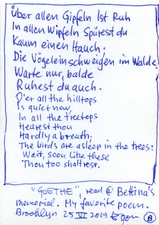 Über allen Gipfeln Ist Ruh
In allen Wipfeln Spürest du
Kaum einen Hauch;
Die Vögelein schweigen im Walde
Warte nur, balde
Ruhest du auch.
O'er all the hilltops
Is quiet now,
In all the treetops
Hearest thou
Hardly a breath;
The birds are asleep in the trees:
Wait, soon like these
Thou too shalt rest.
"GOETHE", read @ Bettina's
memorial. My favorite poem.
Brooklyn 25 VI 2019